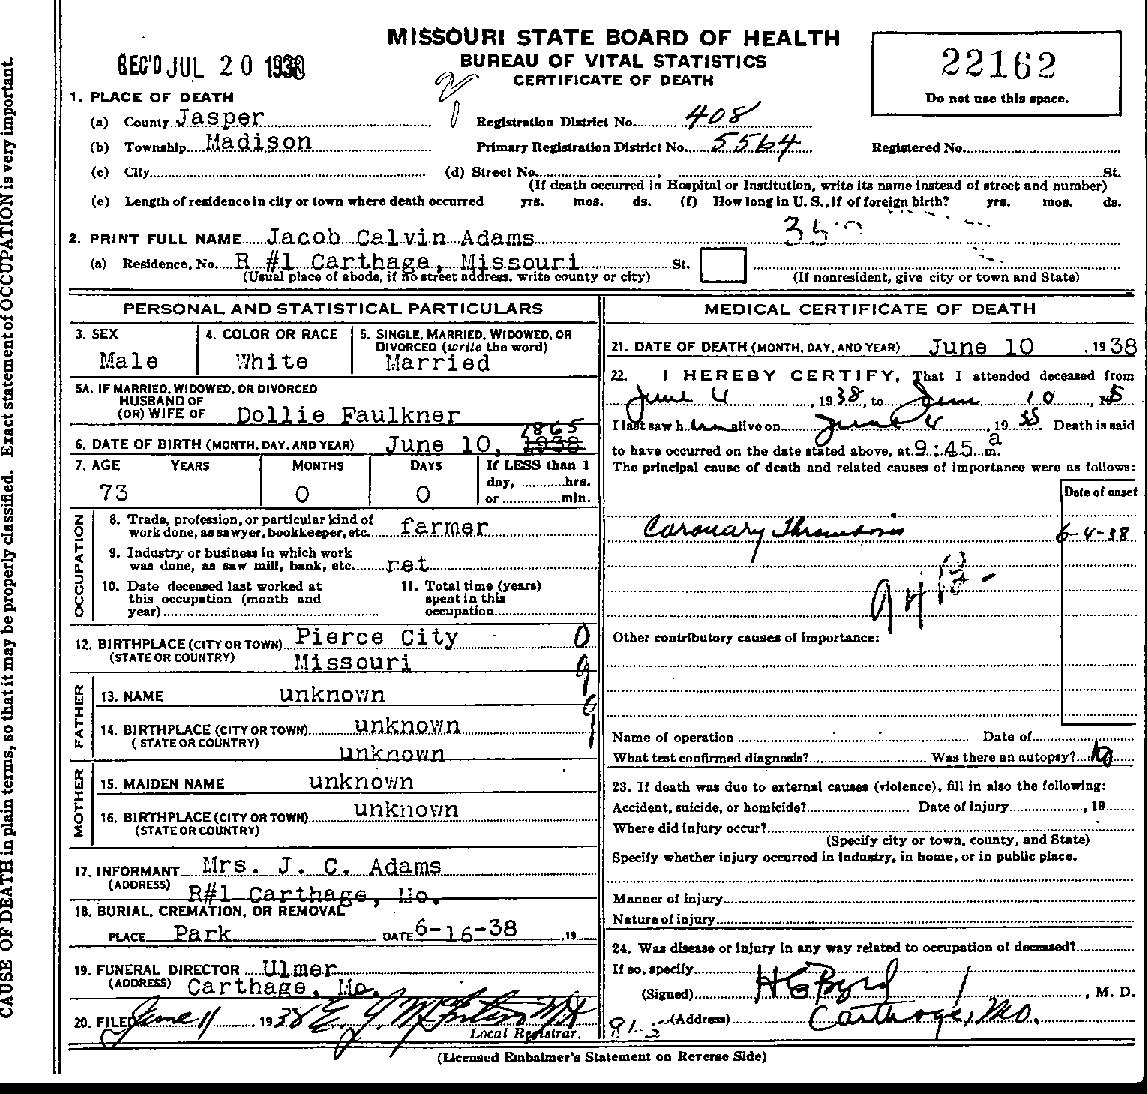 MISSOURI STATE BOARD OF HEALTH
BUREAU OF VITAL STATISTICS
CERTIFICATE OF DEATH
REC'D JUL 20 1938
22162
Do not use this space.
1. PLACE OF DEATH
(a) County Jasper Registration District No. 408
(b) Township Madison Primary Registration District No. 5564 Registered No.
(c) City (d) Street No. St.
(If death occurred in Hospital or Institution, write its name instead of street and number)
(e) Length of residence in city or town where death occurred yrs. mos. ds. (f) How long in U. S., if of foreign birth? yrs. mos. ds.
2. PRINT FULL NAME Jacob Calvin Adams
(a) Residence, No. R #1 Carthage, Missouri St.
(Usual place of abode, if no street address, write county or city) (If nonresident, give city or town and State)
PERSONAL AND STATISTICAL PARTICULARS
3. SEX Male
4. COLOR OR RACE White
5. SINGLE, MARRIED, WIDOWED, OR
DIVORCED (write the word)
Married
5A. IF MARRIED, WIDOWED, OR DIVORCED
HUSBAND OF
(OR) WIFE OF Dollie Faulkner
6. DATE OF BIRTH (MONTH, DAY, AND YEAR) June 10, 1938 1865
7. AGE YEARS MONTHS DAYS If LESS than 1
day, hrs.
or min.
73 0 0
OCCUPATION
8. Trade, profession, or particular kind of
work done, as sawyer, bookkeeper, etc. farmer
9. Industry or business in which work
was done, as saw mill, bank, etc. ret
10. Date deceased last worked at
this occupation (month and
year)
11. Total time (years)
spent in this
occupation
12. BIRTHPLACE (CITY OR TOWN) Pierce City
(STATE OR COUNTRY) Missouri
FATHER
13. NAME unknown
14. BIRTHPLACE (CITY OR TOWN) unknown
(STATE OR COUNTRY) unknown
MOTHER
15. MAIDEN NAME unknown
16. BIRTHPLACE (CITY OR TOWN) unknown
(STATE OR COUNTRY)
17. INFORMANT Mrs. J. C. Adams
(ADDRESS) R#1 Carthage, Mo.
18. BURIAL, CREMATION, OR REMOVAL
PLACE Park DATE 6-16-38 , 19
19. FUNERAL DIRECTOR Ulmer
(ADDRESS) Carthage, Mo.
20. FILED June 11 1938
Local Registrar.
MEDICAL CERTIFICATE OF DEATH
21. DATE OF DEATH (MONTH, DAY, AND YEAR) June 10 , 1938
22. I HEREBY CERTIFY, That I attended deceased from
June 4 , 1938, to June 10
I last saw h im alive on June 4 , 19 38 Death is said
to have occurred on the date stated above, at 9:45 a m.
The principal cause of death and related causes of importance were as follows:
Date of onset
Coronary Thrombosis 6-4-38
Other contributory causes of importance:
Name of operation Date of
What test confirmed diagnosis? Was there an autopsy? No
23. If death was due to external causes (violence), fill in also the following:
Accident, suicide, or homicide? Date of injury , 19
Where did injury occur?
(Specify city or town, county, and State)
Specify whether injury occurred in industry, in home, or in public place.
Manner of injury
Nature of injury
24. Was disease or injury in any way related to occupation of deceased?
If so, specify
(Signed) H C Byrd , M. D.
(Address) Carthage, Mo.
(Licensed Embalmer's Statement on Reverse Side)
CAUSE OF DEATH in plain terms, so that it may be properly classified. Exact statement of OCCUPATION is very important.